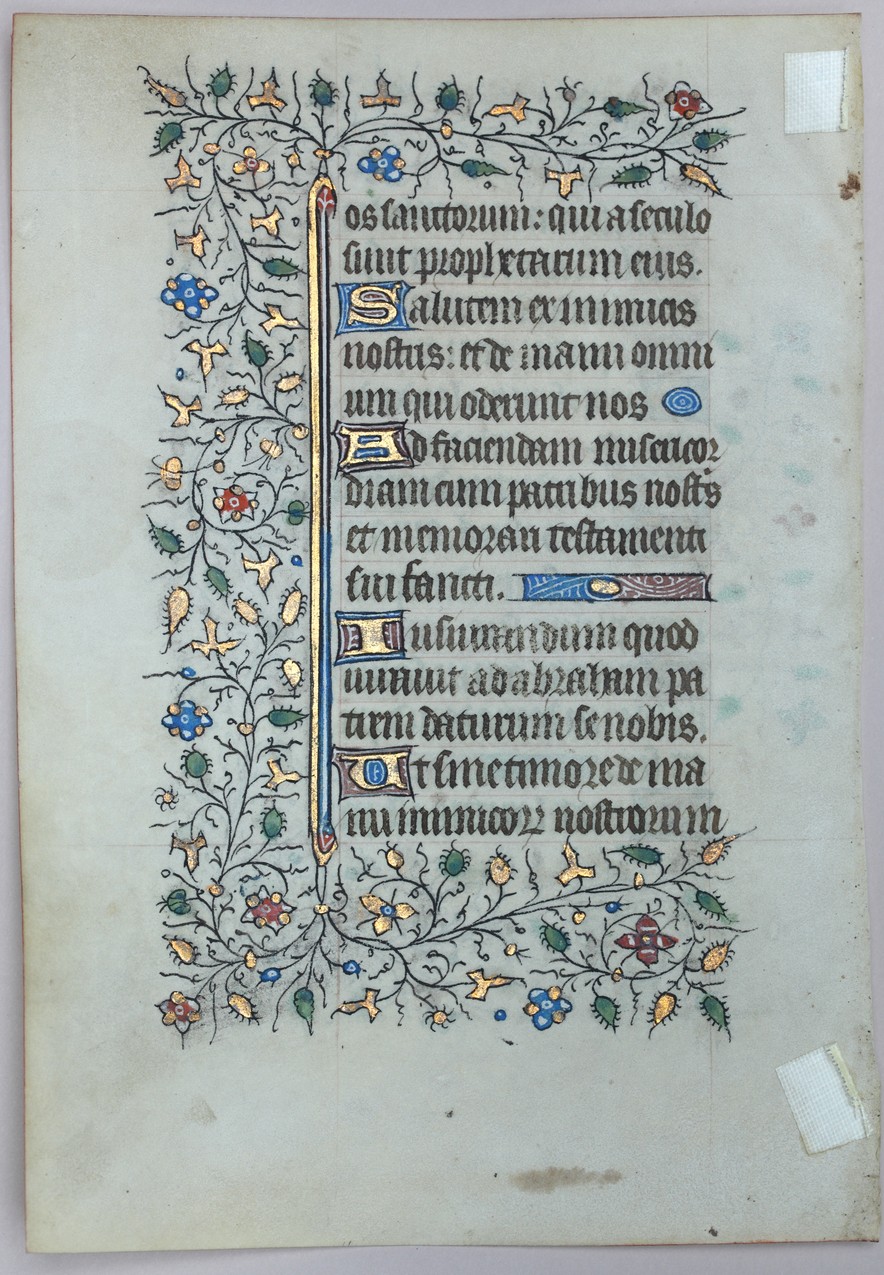 os sanctorum: qui a seculo
sunt prophetarum eius.
Salutem ex inimicis
nostris: et de manu omni
um qui oderunt nos
Ad faciendam misericor
diam cum patribus nostris
et memorari testamenti
sui sancti.
Iusiurandum quod
iuravit ad abraham pa
trem daturum se nobis.
Ut sine timore de ma
nu inimicoꝝ nostrorum